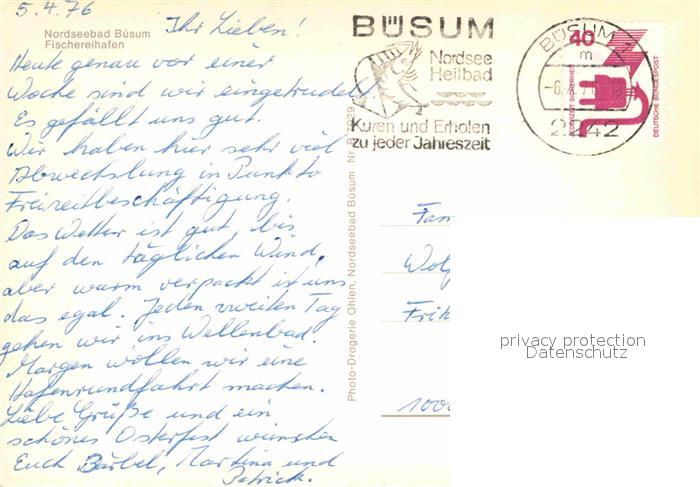 5.4.76
Nordseebad Büsum
Fischereihafen
Ihr Lieben!
Heute genau vor einer
Woche sind wir eingetrudelt.
Es gefällt uns gut.
Wir haben hier sehr viel
Abwechslung in Punkto
Freizeitbeschäftigung.
Das Wetter ist gut, bis
auf den täglichen Wind,
aber warm verpackt ist uns
das egal. Jeden zweiten Tag
gehen wir ins Wellenbad.
Morgen wollen wir eine
Hafenrundfahrt machen.
Liebe Grüße und ein
schönes Osterfest wünschen
Euch Bärbel, Martina und
Patrick.
Photo-Drogerie Ohlen, Nordseebad Büsum
BÜSUM
Nordsee
Heilbad
Kuren und Erholen
zu jeder Jahreszeit
BÜSUM 1
m
2242
40
DEUTSCHE BUNDESPOST
Fam
Wolf
1000
privacy protection
Datenschutz